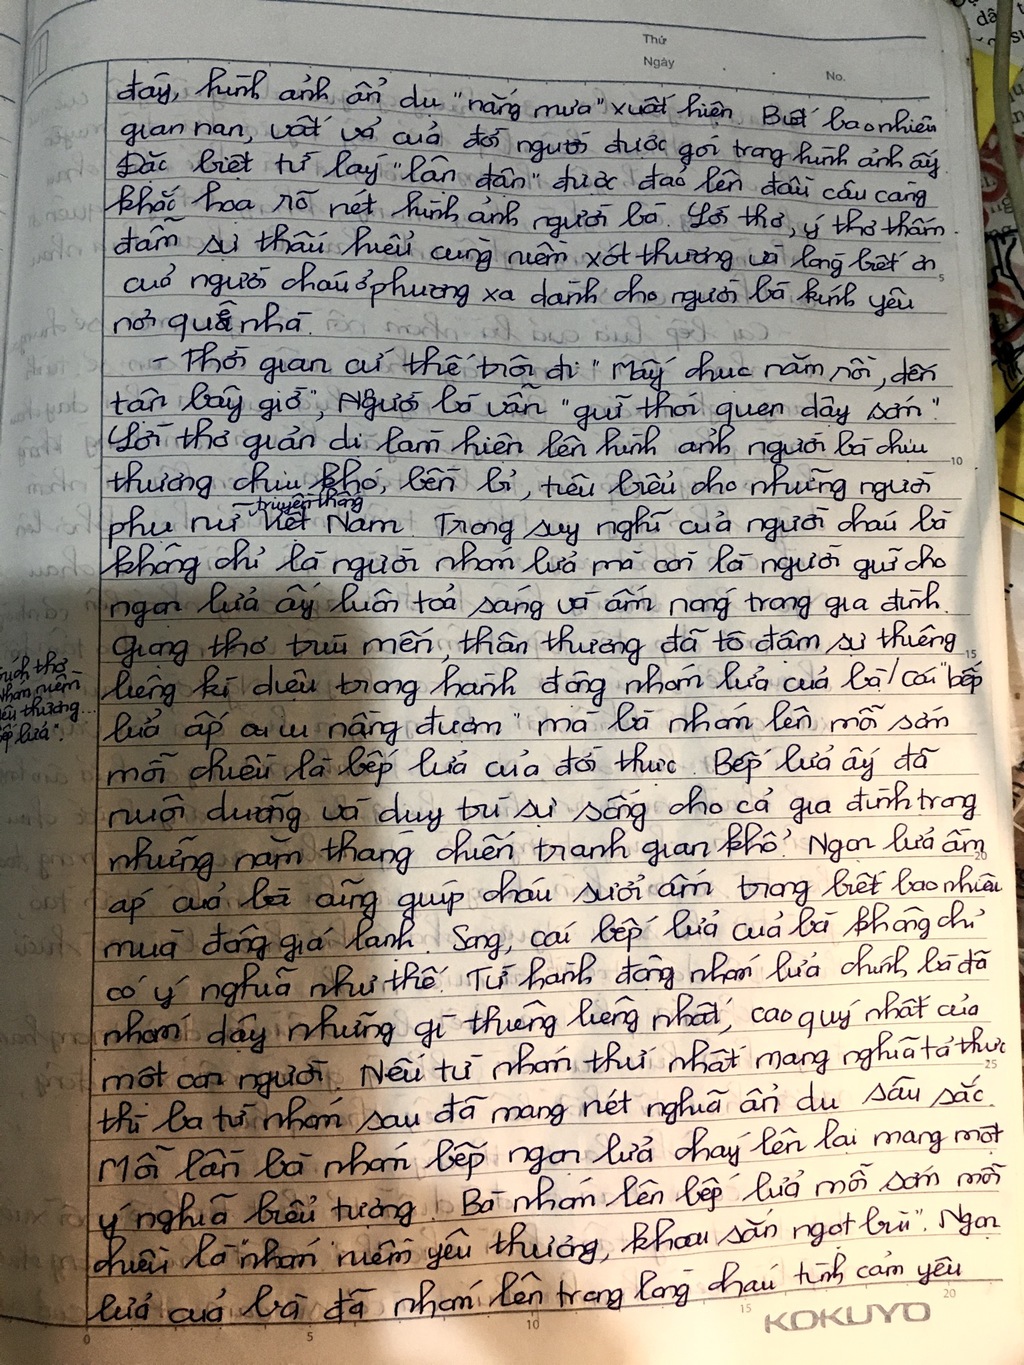 Thứ
Ngày
No.
đây, hình ảnh ẩn dụ "nắng mưa" xuất hiện. Biết bao nhiêu
gian nan, vất vả của đời người được gói trong hình ảnh ấy.
Đặc biệt từ láy "lận đận" được đảo lên đầu câu càng
khắc họa rõ nét hình ảnh người bà. Lời thơ, ý thơ thấm
đẫm sự thấu hiểu cùng niềm xót thương và lòng biết ơn
của người cháu ở phương xa dành cho người bà kính yêu
nơi quê nhà.
- Thời gian cứ thế trôi đi "Mấy chục năm rồi, đến
tận bây giờ", Người bà vẫn "giữ thói quen dậy sớm".
Lời thơ giản dị làm hiện lên hình ảnh người bà chịu
thương chịu khó, bền bỉ, tiêu biểu cho những người
truyền thống
phụ nữ Việt Nam. Trong suy nghĩ của người cháu bà
không chỉ là người nhóm lửa mà còn là người giữ cho
ngọn lửa ấy luôn toả sáng và ấm nóng trong gia đình.
Giọng thơ trìu mến, thân thương đã tô đậm sự thiêng
liêng kì diệu trong hành động nhóm lửa của bà/ Cái "bếp
lửa ấp iu nồng đượm" mà bà nhóm lên mỗi sớm
mỗi chiều là bếp lửa của đời thực. Bếp lửa ấy đã
nuôi dưỡng và duy trì sự sống cho cả gia đình trong
những năm tháng chiến tranh gian khổ. Ngọn lửa ấm
áp của bà cũng giúp cháu sưởi ấm trong biết bao nhiêu
mùa đông giá lạnh. Song, cái bếp lửa của bà không chỉ
có ý nghĩa như thế. Từ hành động nhóm lửa chính bà đã
nhóm dậy những gì thiêng liêng nhất, cao quý nhất của
một con người. Nếu từ nhóm thứ nhất mang nghĩa tả thực
thì ba từ nhóm sau đã mang nét nghĩa ẩn dụ sâu sắc.
Mỗi lần bà nhóm bếp ngọn lửa cháy lên lại mang một
ý nghĩa biểu tượng. Bà nhóm lên bếp lửa mỗi sớm mỗi
chiều là "nhóm niềm yêu thương, khoai sắn ngọt bùi". Ngọn
lửa của bà đã nhóm lên trong lòng cháu tình cảm yêu
thơ
nhóm niềm
yêu thương...
bếp lửa".
5
10
15
20
25
0 5 10 15 20
KOKUYO